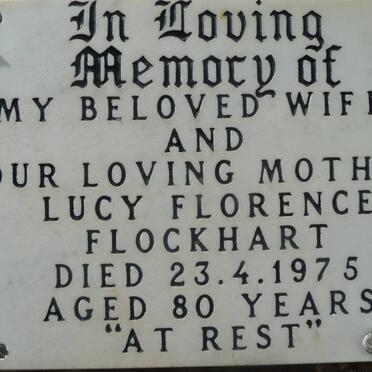 In Loving
Memory of
MY BELOVED WIF
AND
OUR LOVING MOTH
LUCY FLORENCE
FLOCKHART
DIED 23.4.1975
AGED 80 YEARS
"AT REST"